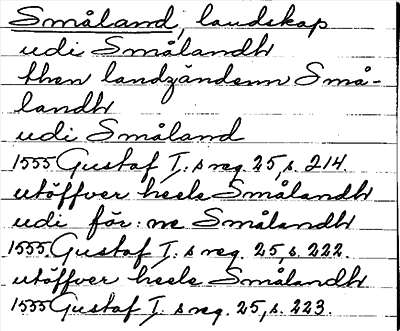 Småland, landskap
udi Smålandh
then landzändenn Små-
landh
udi Småland
1555 Gustaf I:s reg. 25, s. 214.
utöffver heele Smålandh
udi för:ne Smålandh
1555 Gustaf I:s reg. 25, s. 222.
utöffver heele Smålandh
1555 Gustaf I:s reg. 25, s. 223.